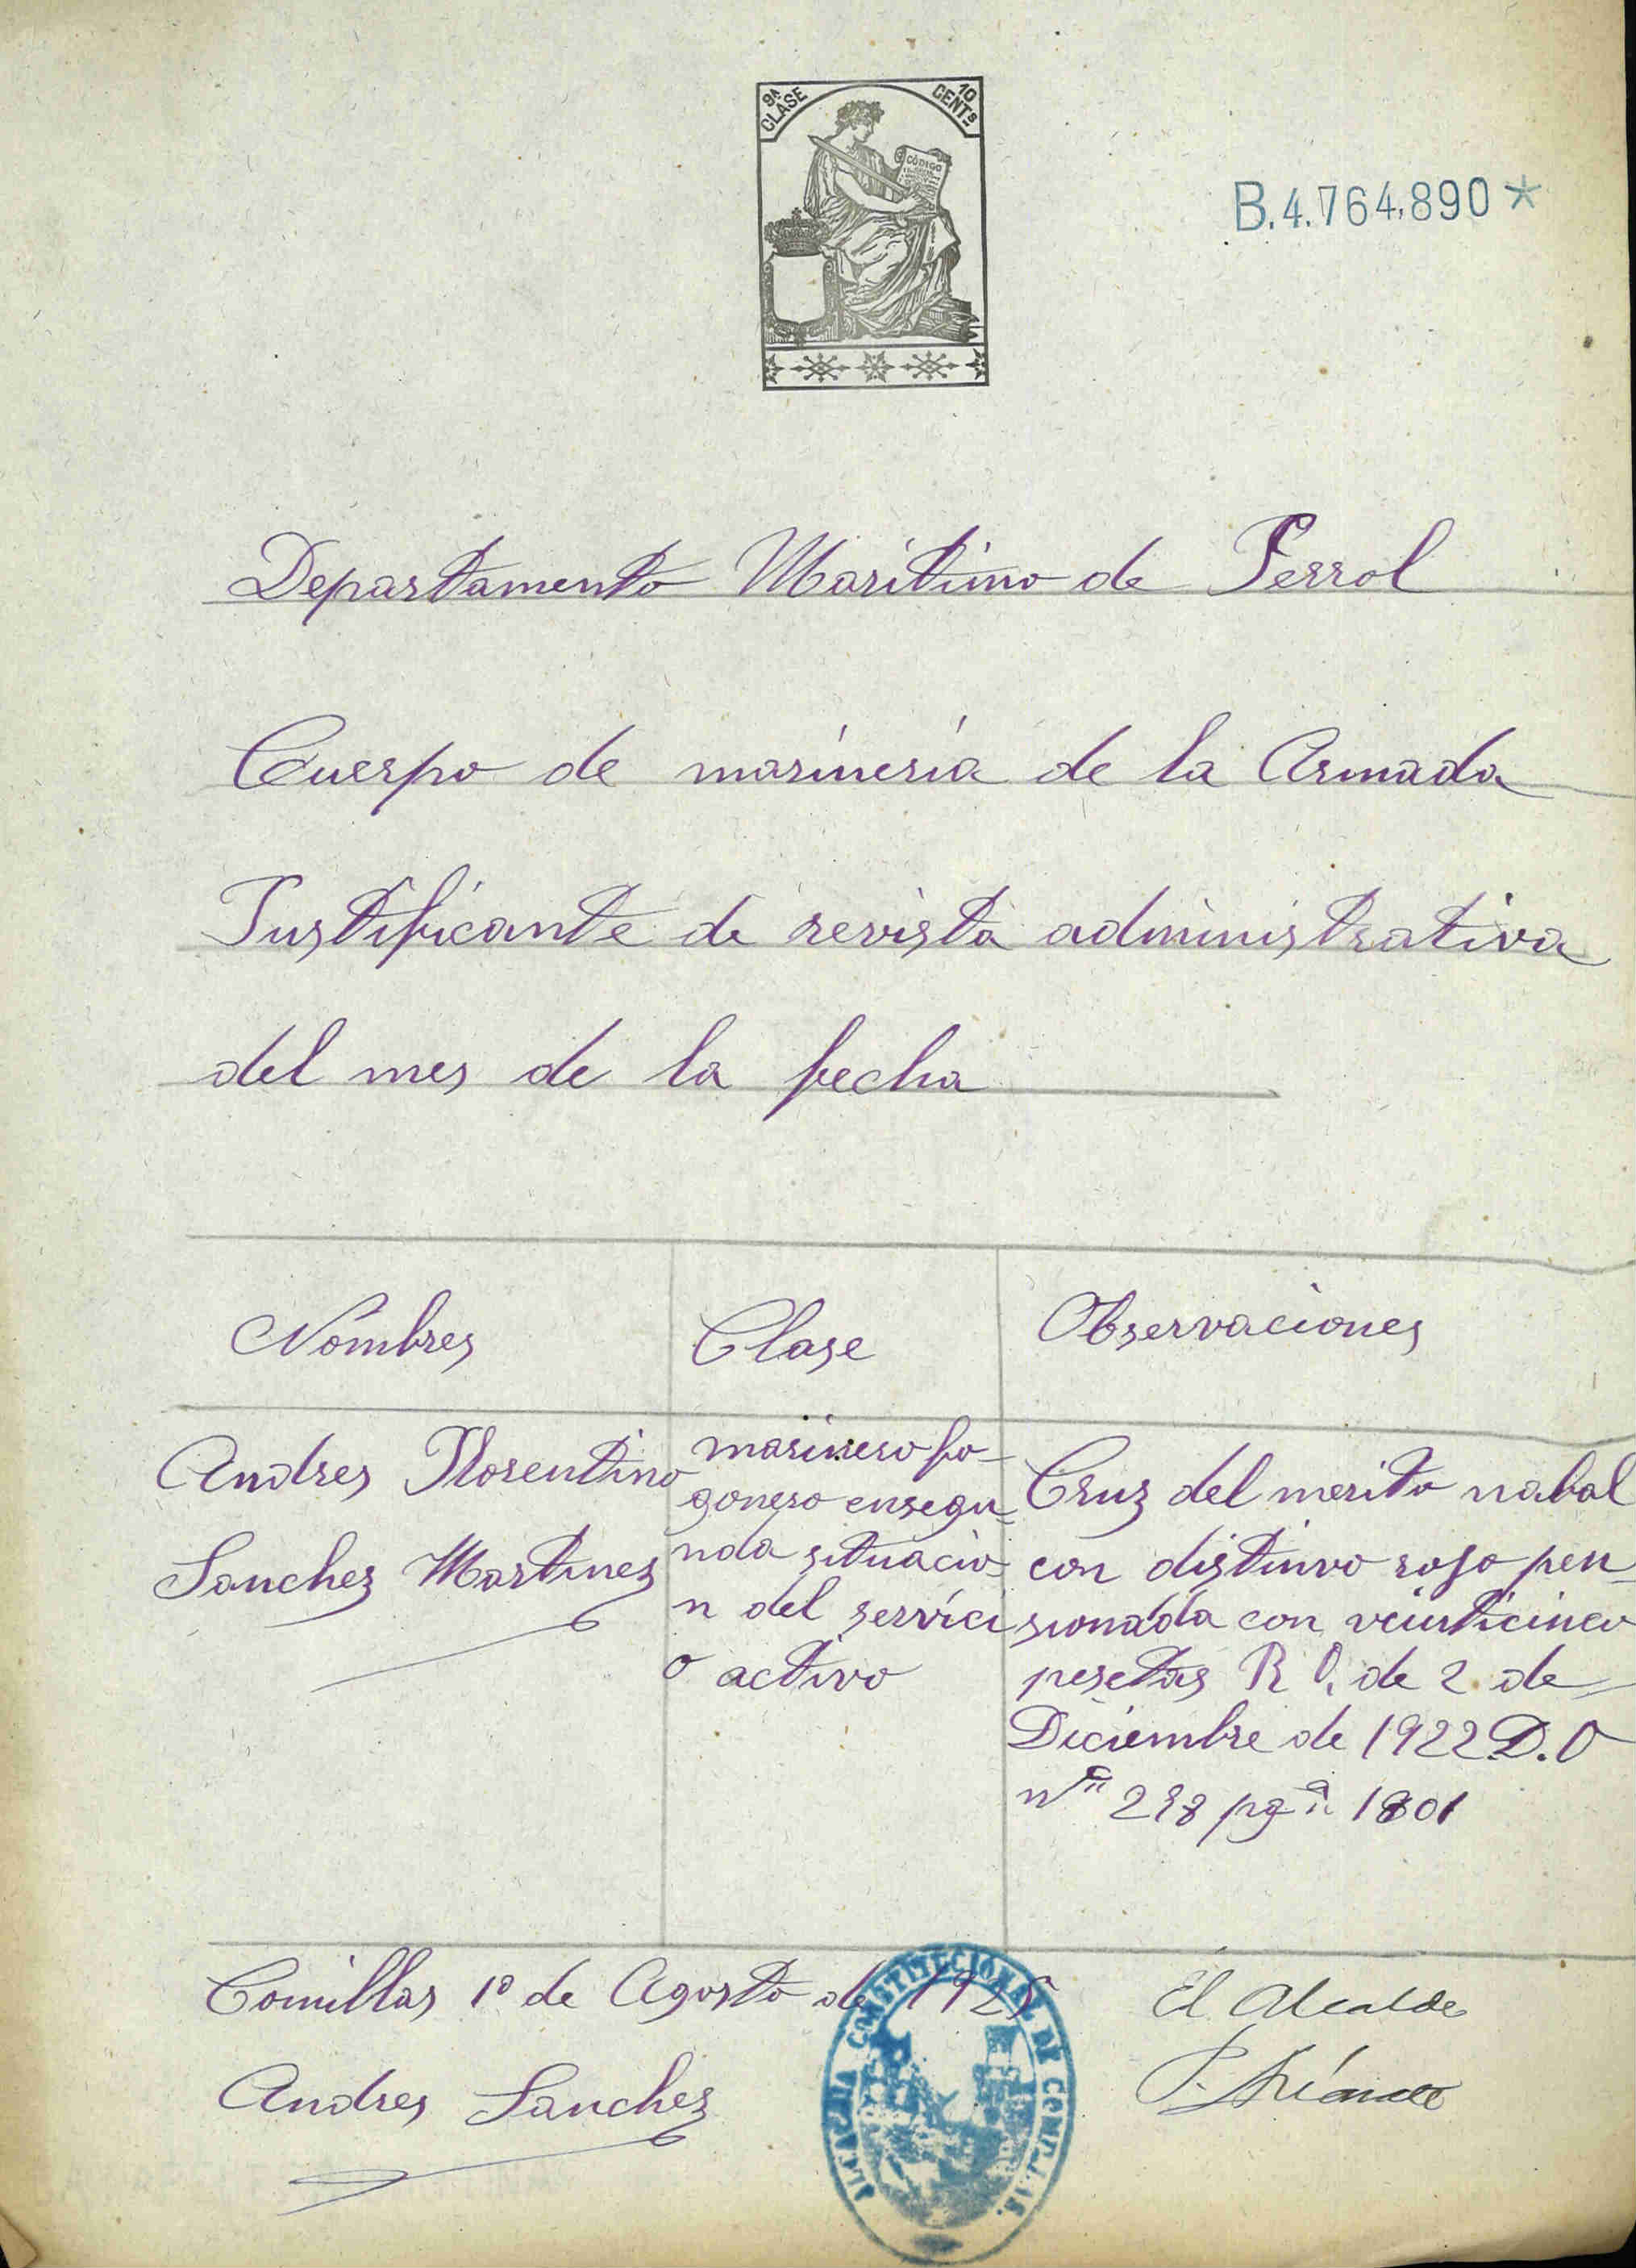 9ª CLASE
10 CENTs
CÓDIGO
B.4.764.890*
Departamento Maritimo de Ferrol
Cuerpo de marineria de la Armada
Justificante de revista administrativa
del mes de la fecha
Nombres Clase Observaciones
Andres Florentino
Sanchez Martinez
marinero fo-
gonero en segu-
nda situacio-
n del servici
o activo
Cruz del merito nabal
con distinvo rojo pen-
sionada con veinticinco
pesetas R O. de 2 de
Diciembre de 1922 D.O
298 pgª 1801
Comillas 1º de Agosto de 1925
El Alcalde
Andres Sanchez
ALCALDIA CONSTITUCIONAL DE COMILLAS.